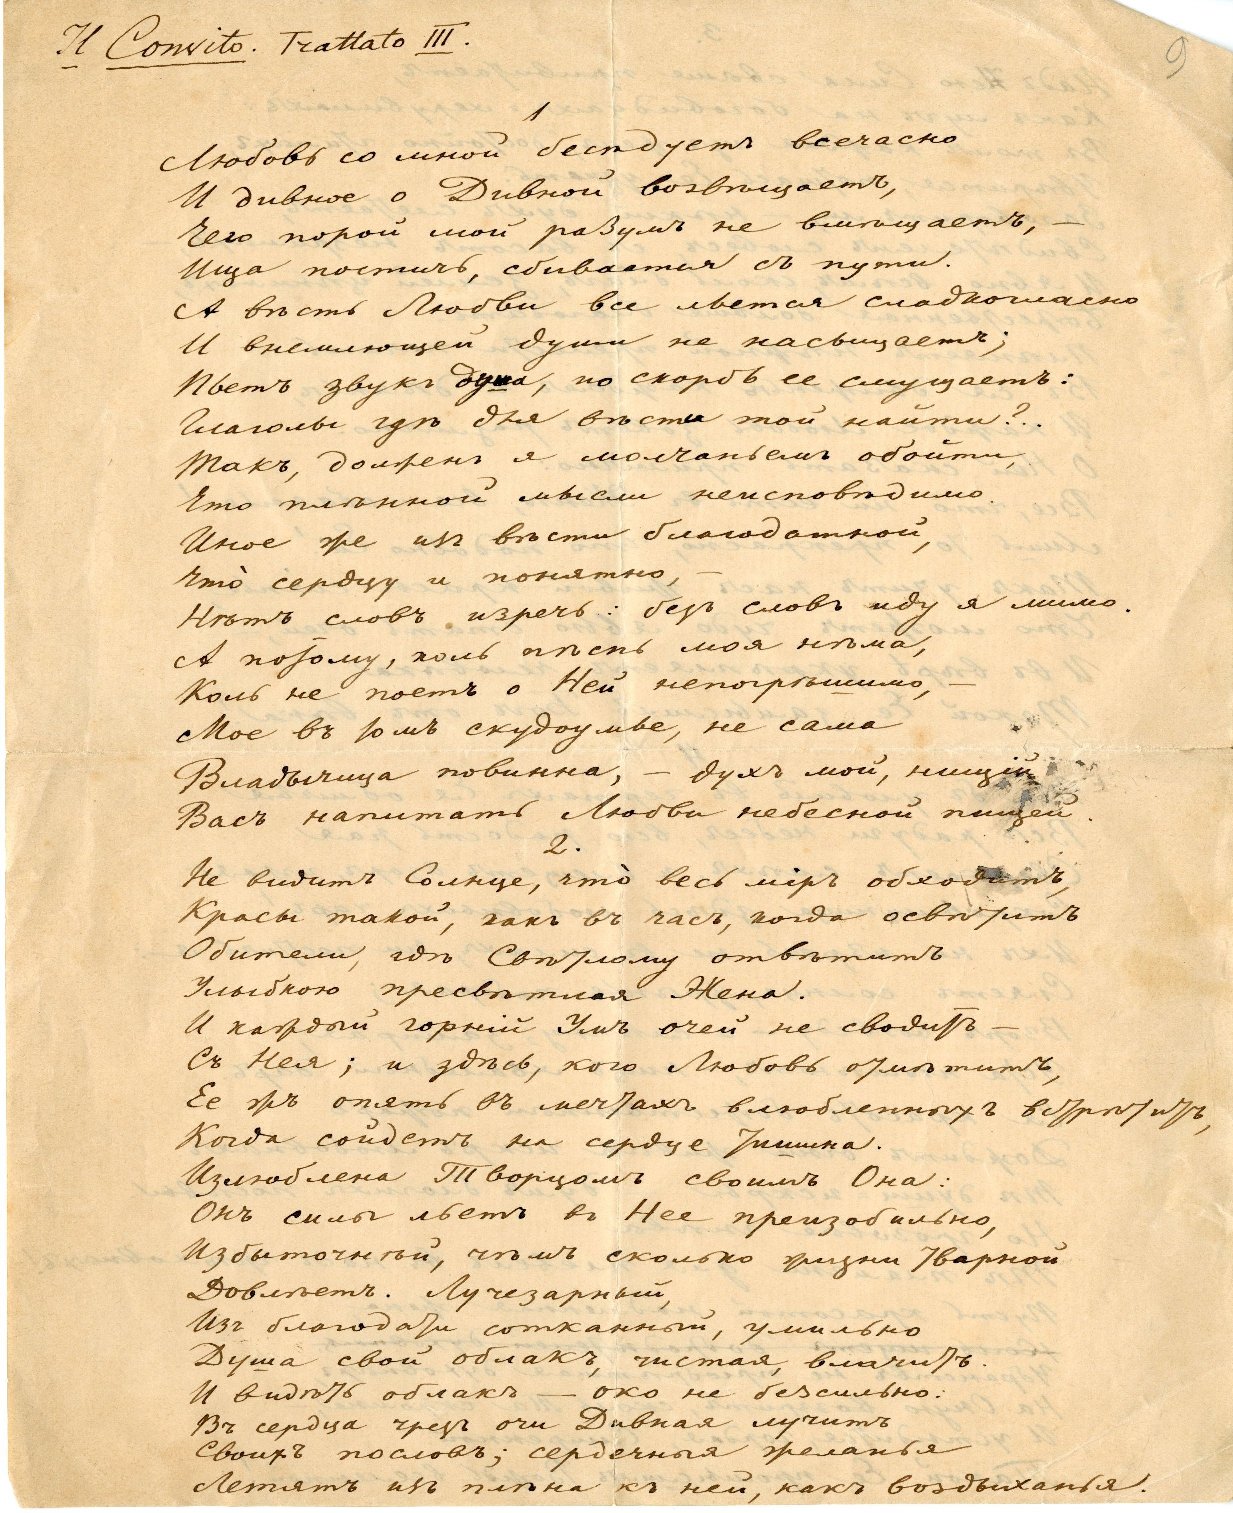 Il Convito. Trattato III.
9
1
Любовь со мной бесѣдуетъ всечасно
И дивное о Дивной возвѣщаетъ,
Чего порой мой разумъ не вмѣщаетъ, –
Ища постичь, сбивается съ пути.
А вѣсть Любви все льется сладкогласно
И внемлющей души не насыщаетъ;
Пьетъ звукъ душа, но скорбь ее смущаетъ:
Глаголы гдѣ для вѣсти той найти?..
Такъ, долженъ я молчаньемъ обойти,
Что плѣнной мысли неисповѣдимо.
Иное же изъ вѣсти благодатной,
Что̀ сердцу и понятно, –
Нѣтъ словъ изречь: безъ словъ иду я мимо.
А потому, коль пѣснь моя нѣма,
Коль не поетъ о Ней непогрѣшимо, –
Мое въ томъ скудоумье, не сама
Владычица повинна, – духъ мой, нищій
Васъ напитать Любви небесной пищей.
2.
Не видитъ Солнце, что̀ весь міръ обходитъ,
Красы такой, какъ въ часъ, когда освѣтитъ
Обители, гдѣ Свѣтлому отвѣтитъ
Улыбкою пресвѣтлая Жена.
И каждый горній Умъ очей не сводитъ –
Съ Нея; и здѣсь, кого Любовь отмѣтитъ,
Ее жъ опять въ мечтахъ влюбленныхъ встрѣтитъ,
Когда сойдетъ на сердце тишина.
Излюблена Творцомъ своимъ Она:
Онъ силы льетъ въ Нее преизобильно,
Избыточнѣй, чѣмъ сколько жизни тварной
Довлѣетъ. Лучезарный,
Изъ благодати сотканный, умильно
Душа свой облакъ, чистая, влачитъ.
И видѣть облакъ – око не безсильно:
Въ сердца чрезъ очи Дивная лучитъ
Своихъ пословъ; сердечныя желанья
Летятъ изъ плѣна къ ней, какъ воздыханья.